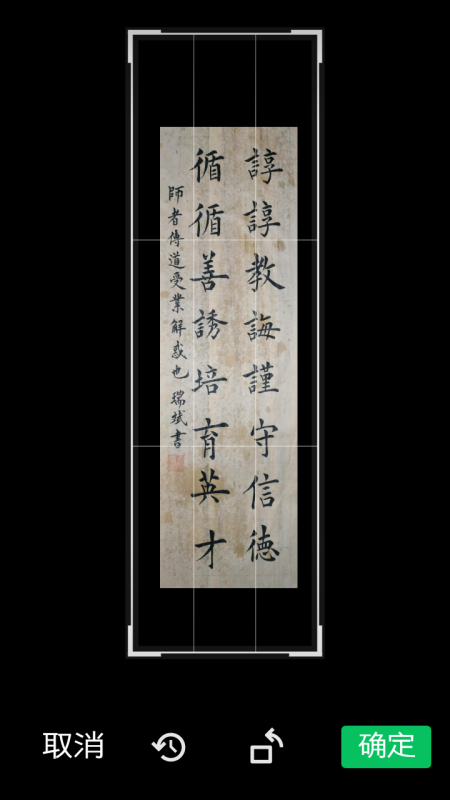 諄諄教誨謹守信德
循循善誘培育英才
師者傳道受業解惑也 瑞斌書
取消
确定